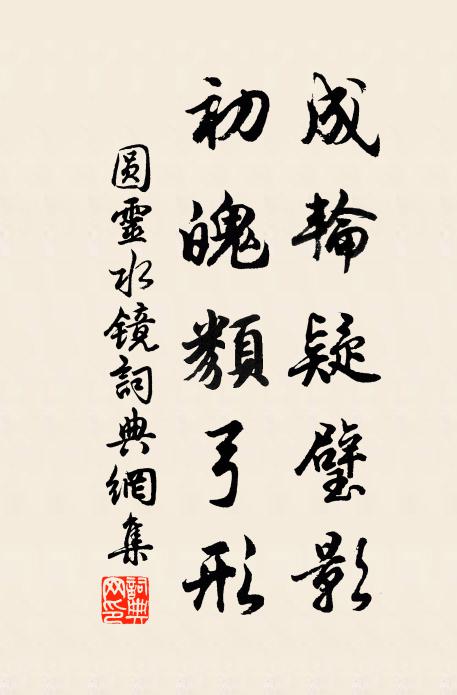 成輪疑璧影
初魄類弓形
圆靈水镜詞典網集
詞典网印